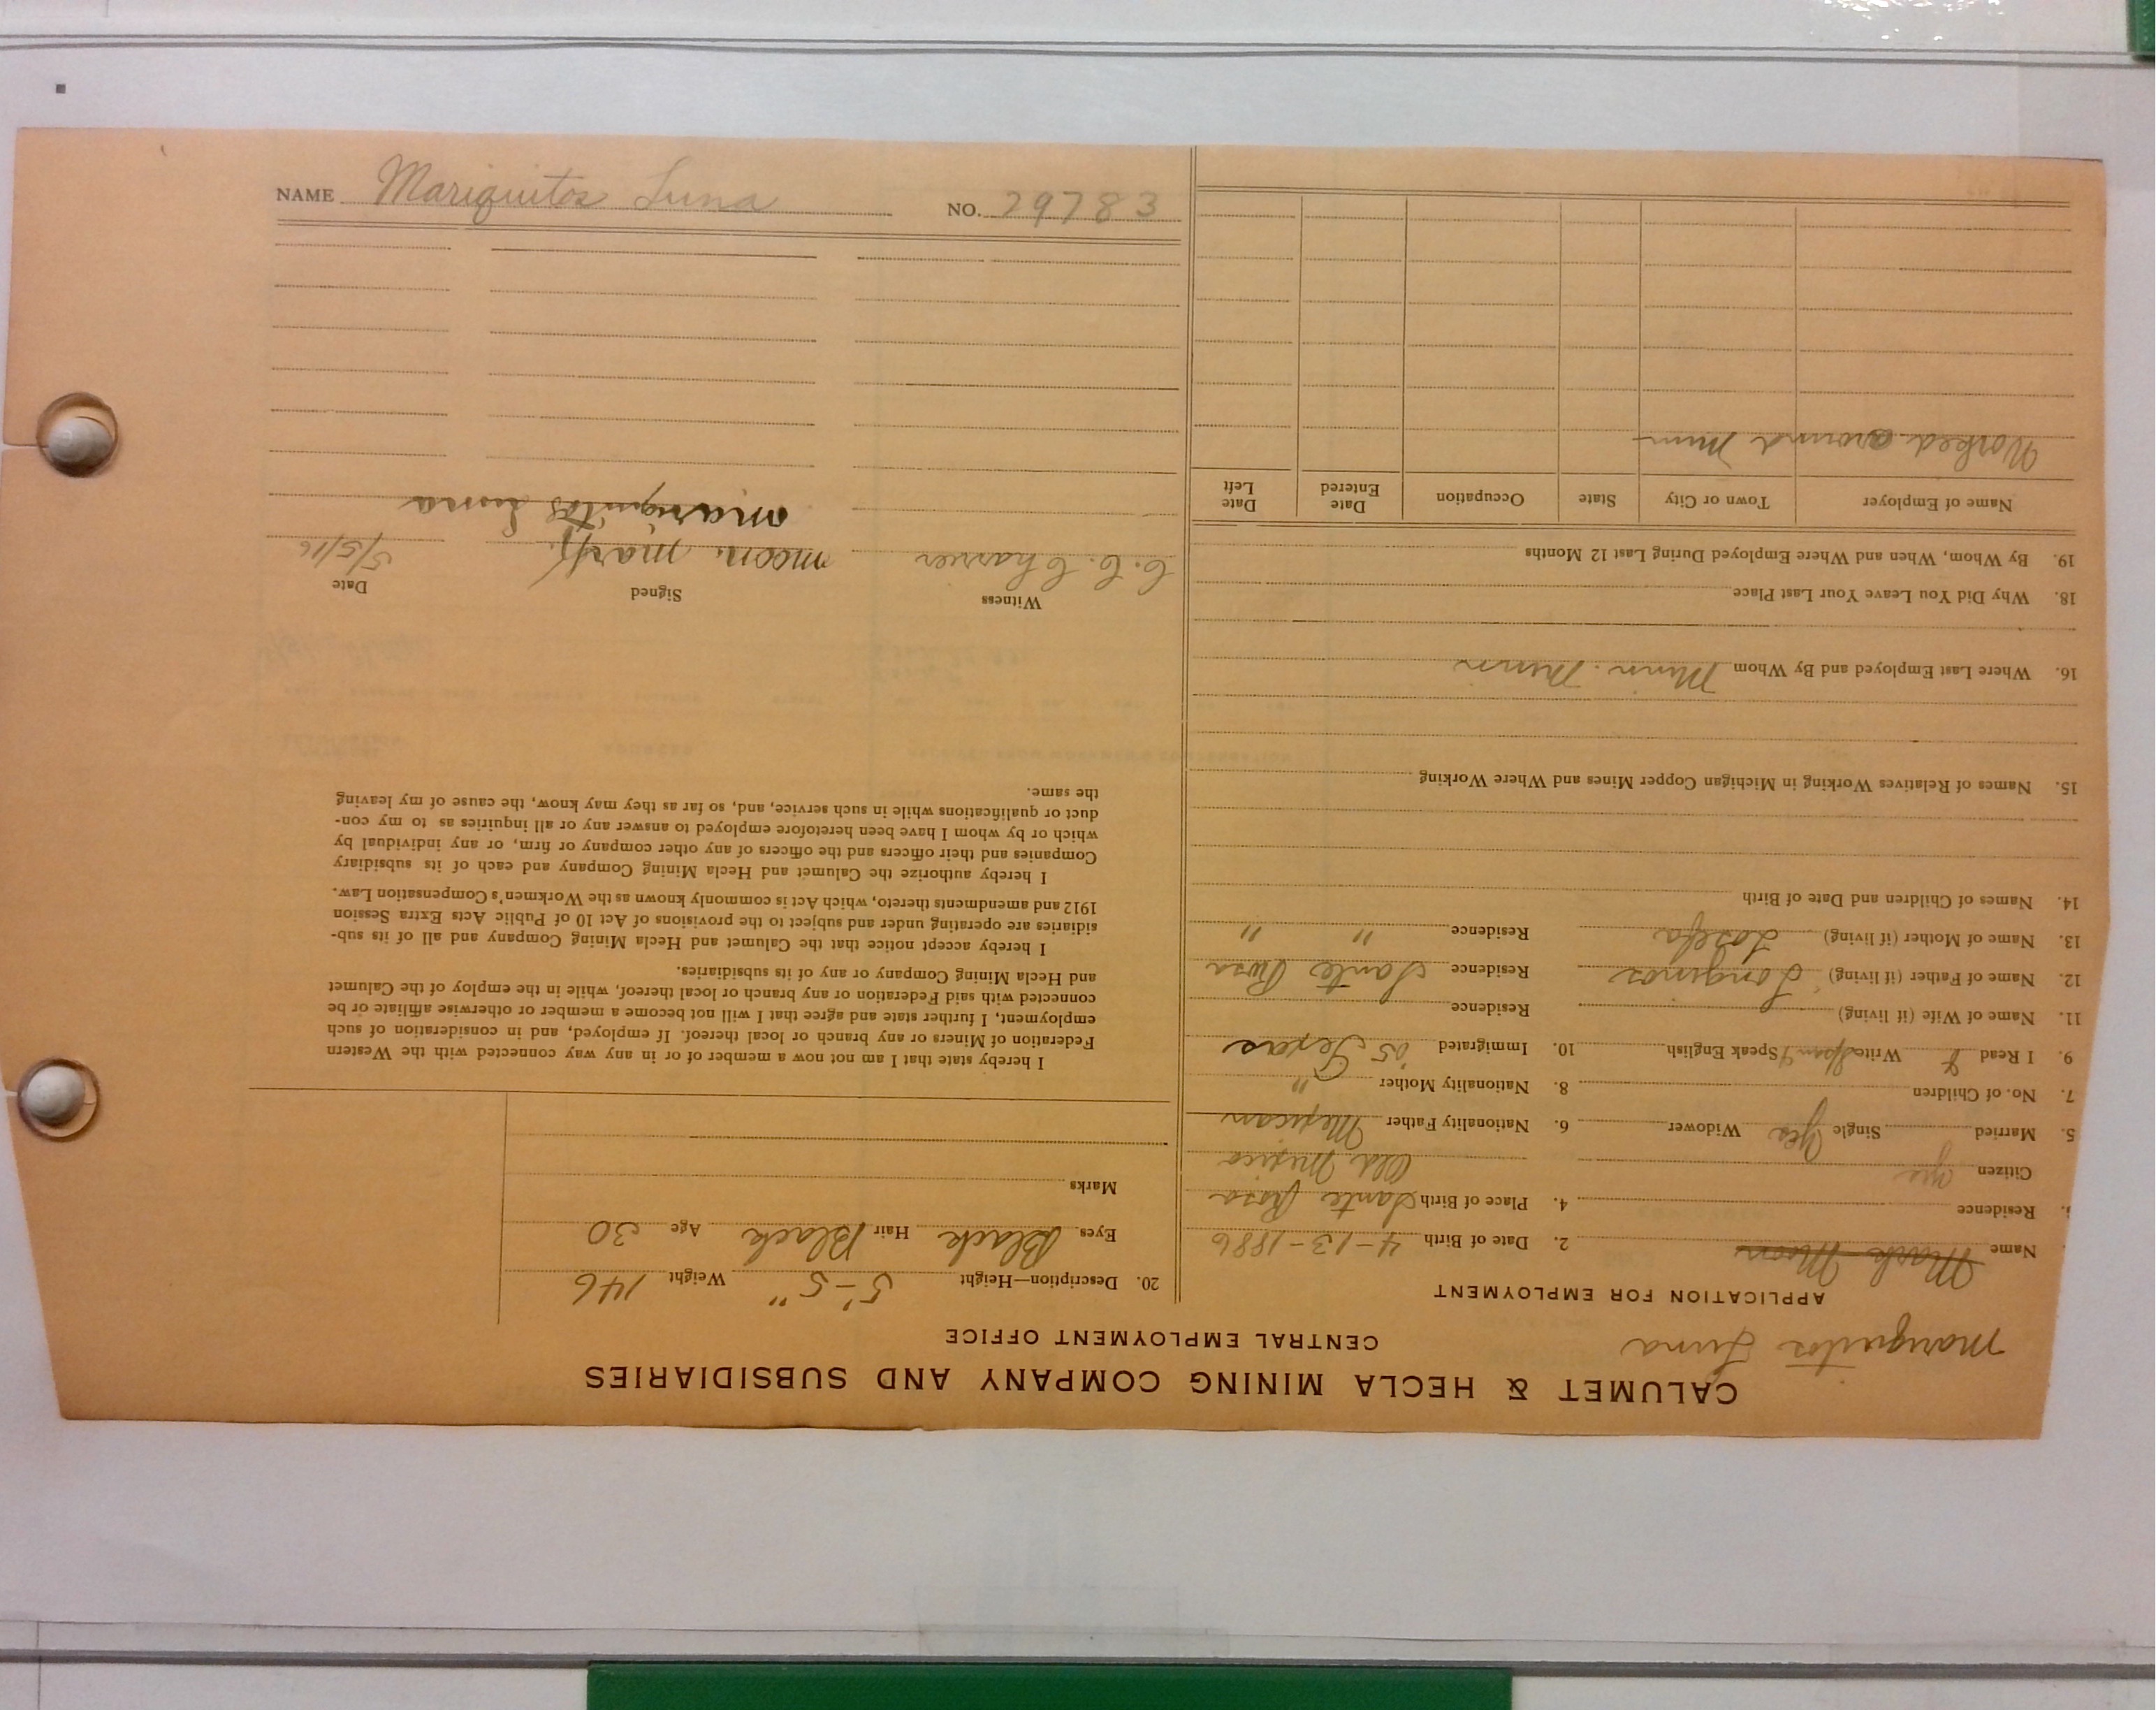 NAME Mariquitos Luna NO. 29783
CALUMET & HECLA MINING COMPANY AND SUBSIDIARIES
CENTRAL EMPLOYMENT OFFICE
Mariquitos Luna
APPLICATION FOR EMPLOYMENT
Name Mark Moon 2. Date of Birth 4-13-1886
Residence 4. Place of Birth Sante Rosa
Citizen yes Old Mexico
5. Married Single Yes Widower 6. Nationality Father Mexican
7. No. of Children 8. Nationality Mother "
9. I Read Write Speak English 10. Immigrated '05 Texas
11. Name of Wife (if living) Residence
12. Name of Father (if living) Longinos Residence Sante Rosa
13. Name of Mother (if living) Residence " "
14. Names of Children and Date of Birth
15. Names of Relatives Working in Michigan Copper Mines and Where Working
16. Where Last Employed and By Whom Minn.
18. Why Did You Leave Your Last Place
19. By Whom, When and Where Employed During Last 12 Months
Name of Employer Town or City State Occupation Date Entered Date Left
Worked around
20. Description—Height 5'-5" Weight 146
Eyes Black Hair Black Age 30
Marks
I hereby state that I am not now a member of or in any way connected with the Western
Federation of Miners or any branch or local thereof. If employed, and in consideration of such
employment, I further state and agree that I will not become a member or otherwise affiliate or be
connected with said Federation or any branch or local thereof, while in the employ of the Calumet
and Hecla Mining Company or any of its subsidiaries.
I hereby accept notice that the Calumet and Hecla Mining Company and all of its sub-
sidiaries are operating under and subject to the provisions of Act 10 of Public Acts Extra Session
1912 and amendments thereto, which Act is commonly known as the Workmen's Compensation Law.
I hereby authorize the Calumet and Hecla Mining Company and each of its subsidiary
Companies and their officers and the officers of any other company or firm, or any individual by
which or by whom I have been heretofore employed to answer any or all inquiries as to my con-
duct or qualifications while in such service, and, so far as they may know, the cause of my leaving
the same.
Witness Signed Date
C. C. moon. mark. 5/5/16
mariquitos Luna